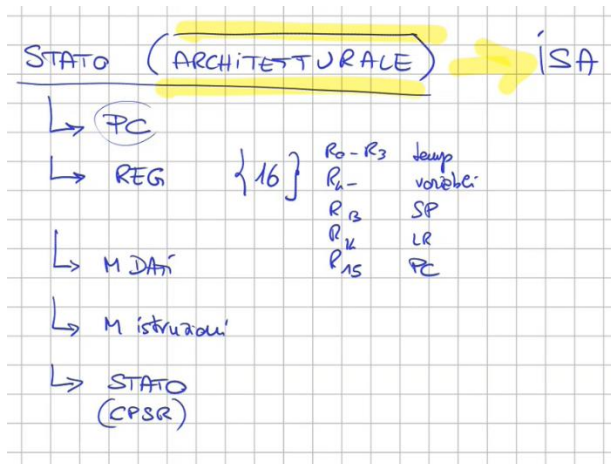 STATO (ARCHITETTURALE) ISA
PC
REG {16} R0-R3 temp
R4- variabili
R13 SP
R14 LR
R15 PC
M DATI
M istruzioni
STATO
(CPSR)